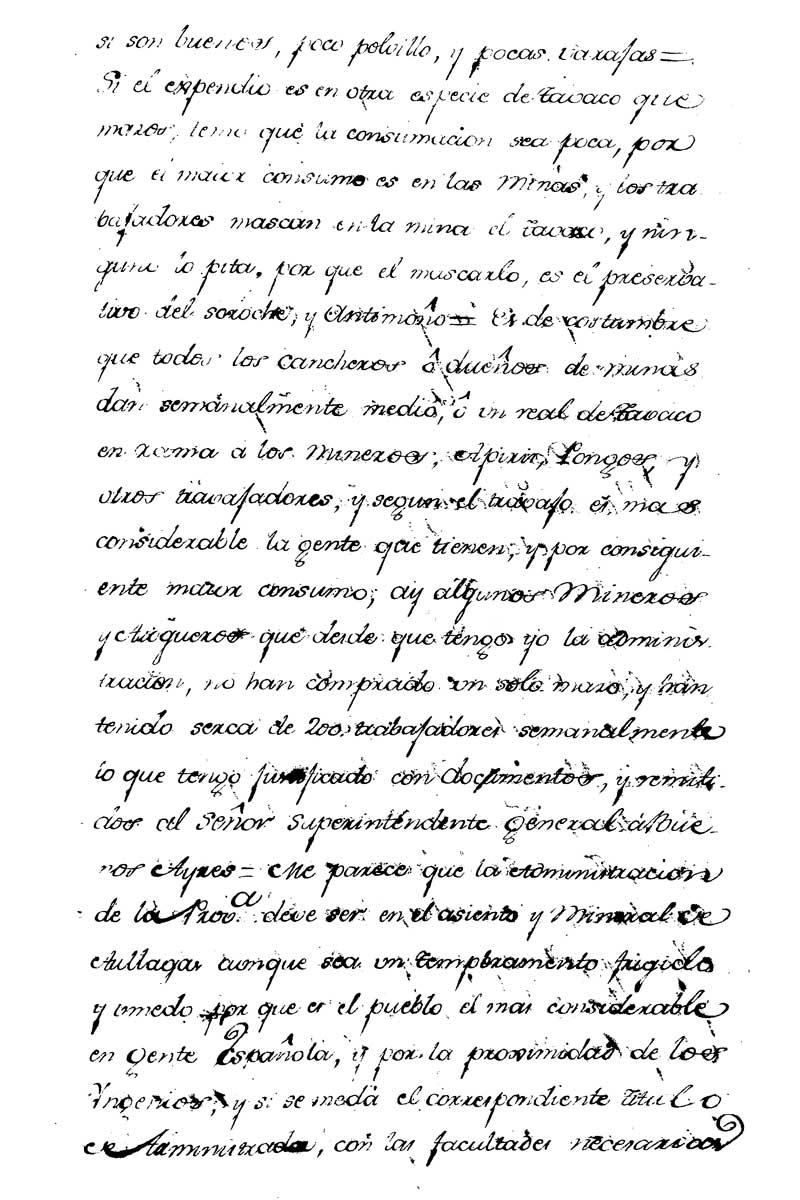 si son buenos, poco polvillo, y pocas varajas =
Si el expendio es en otra especie de tavaco que
mazos, temo que la consumacion sea poca, por
que el maior consumo es en las Minas, y los tra
bajadores mascan en la mina el tavaco, y nin-
guno lo pita, por que el mascarlo, es el preserva-
tivo del soroche, y Antimoño = Es de costumbre
que todos los Cancheros ô dueños de minas
dan semanalmente medio, ô un real de tavaco
en rama a los Mineros, Apiris, Pongos, y
otros travajadores, y segun el travajo es mas
considerable la gente que tienen, y por consigui-
ente maior consumo; ay algunos Mineros
y Azogueros que desde que tengo yo la adminis
tracion, no han comprado un solo mazo, y han
tenido serca de 200. trabajadores semanalmente
lo que tengo justificado con documentos, y remiti-
dos al Señor Superintendente General â Bue-
nos Ayres = Me parece que la Administracion
de la Prov.a deve ser en el asiento y Mineral de
Aullagas aunque sea un temperamento frigido
y umedo por que es el pueblo el mas considerable
en gente Española, y por la proximidad de los
Yngenios, y si se me dá el correspondiente titulo
de Administrador, con las facultades necesarias